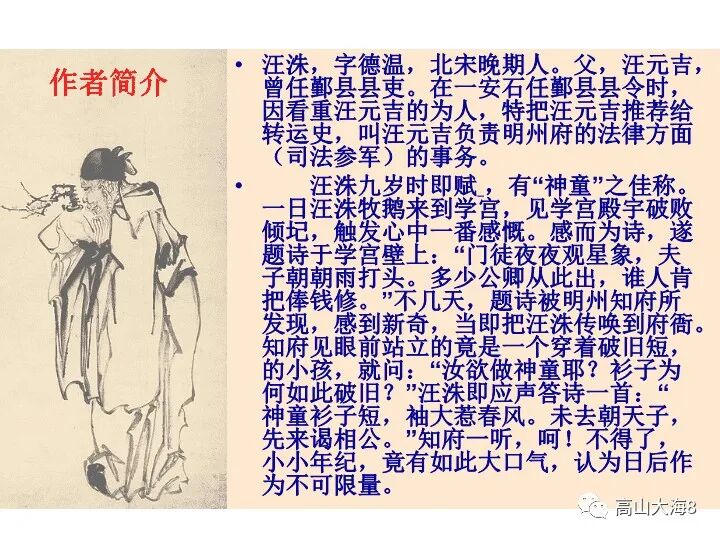 作者简介
• 汪洙，字德温，北宋晚期人。父，汪元吉，
曾任鄞县县吏。在一安石任鄞县县令时，
因看重汪元吉的为人，特把汪元吉推荐给
转运史，叫汪元吉负责明州府的法律方面
（司法参军）的事务。
• 汪洙九岁时即赋 ，有“神童”之佳称。
一日汪洙牧鹅来到学宫，见学宫殿宇破败
倾圮，触发心中一番感慨。感而为诗，遂
题诗于学宫壁上：“门徒夜夜观星象，夫
子朝朝雨打头。多少公卿从此出，谁人肯
把俸钱修。”不几天，题诗被明州知府所
发现，感到新奇，当即把汪洙传唤到府衙。
知府见眼前站立的竟是一个穿着破旧短，
的小孩，就问：“汝欲做神童耶？衫子为
何如此破旧？”汪洙即应声答诗一首：“
神童衫子短，袖大惹春风。未去朝天子，
先来谒相公。”知府一听，呵！不得了，
小小年纪，竟有如此大口气，认为日后作
为不可限量。
高山大海8